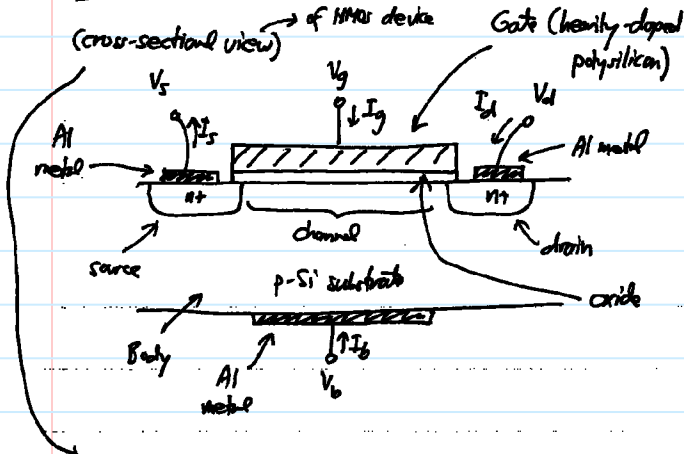 (cross-sectional view) → of NMOS device
Gate (heavily-doped
polysilicon)
Vs
Vg
Vd
Is
Ig
Id
Al
metal
Al metal
n+
n+
channel
source
drain
p-Si substrate
oxide
Body
Al
metal
Ib
Vb